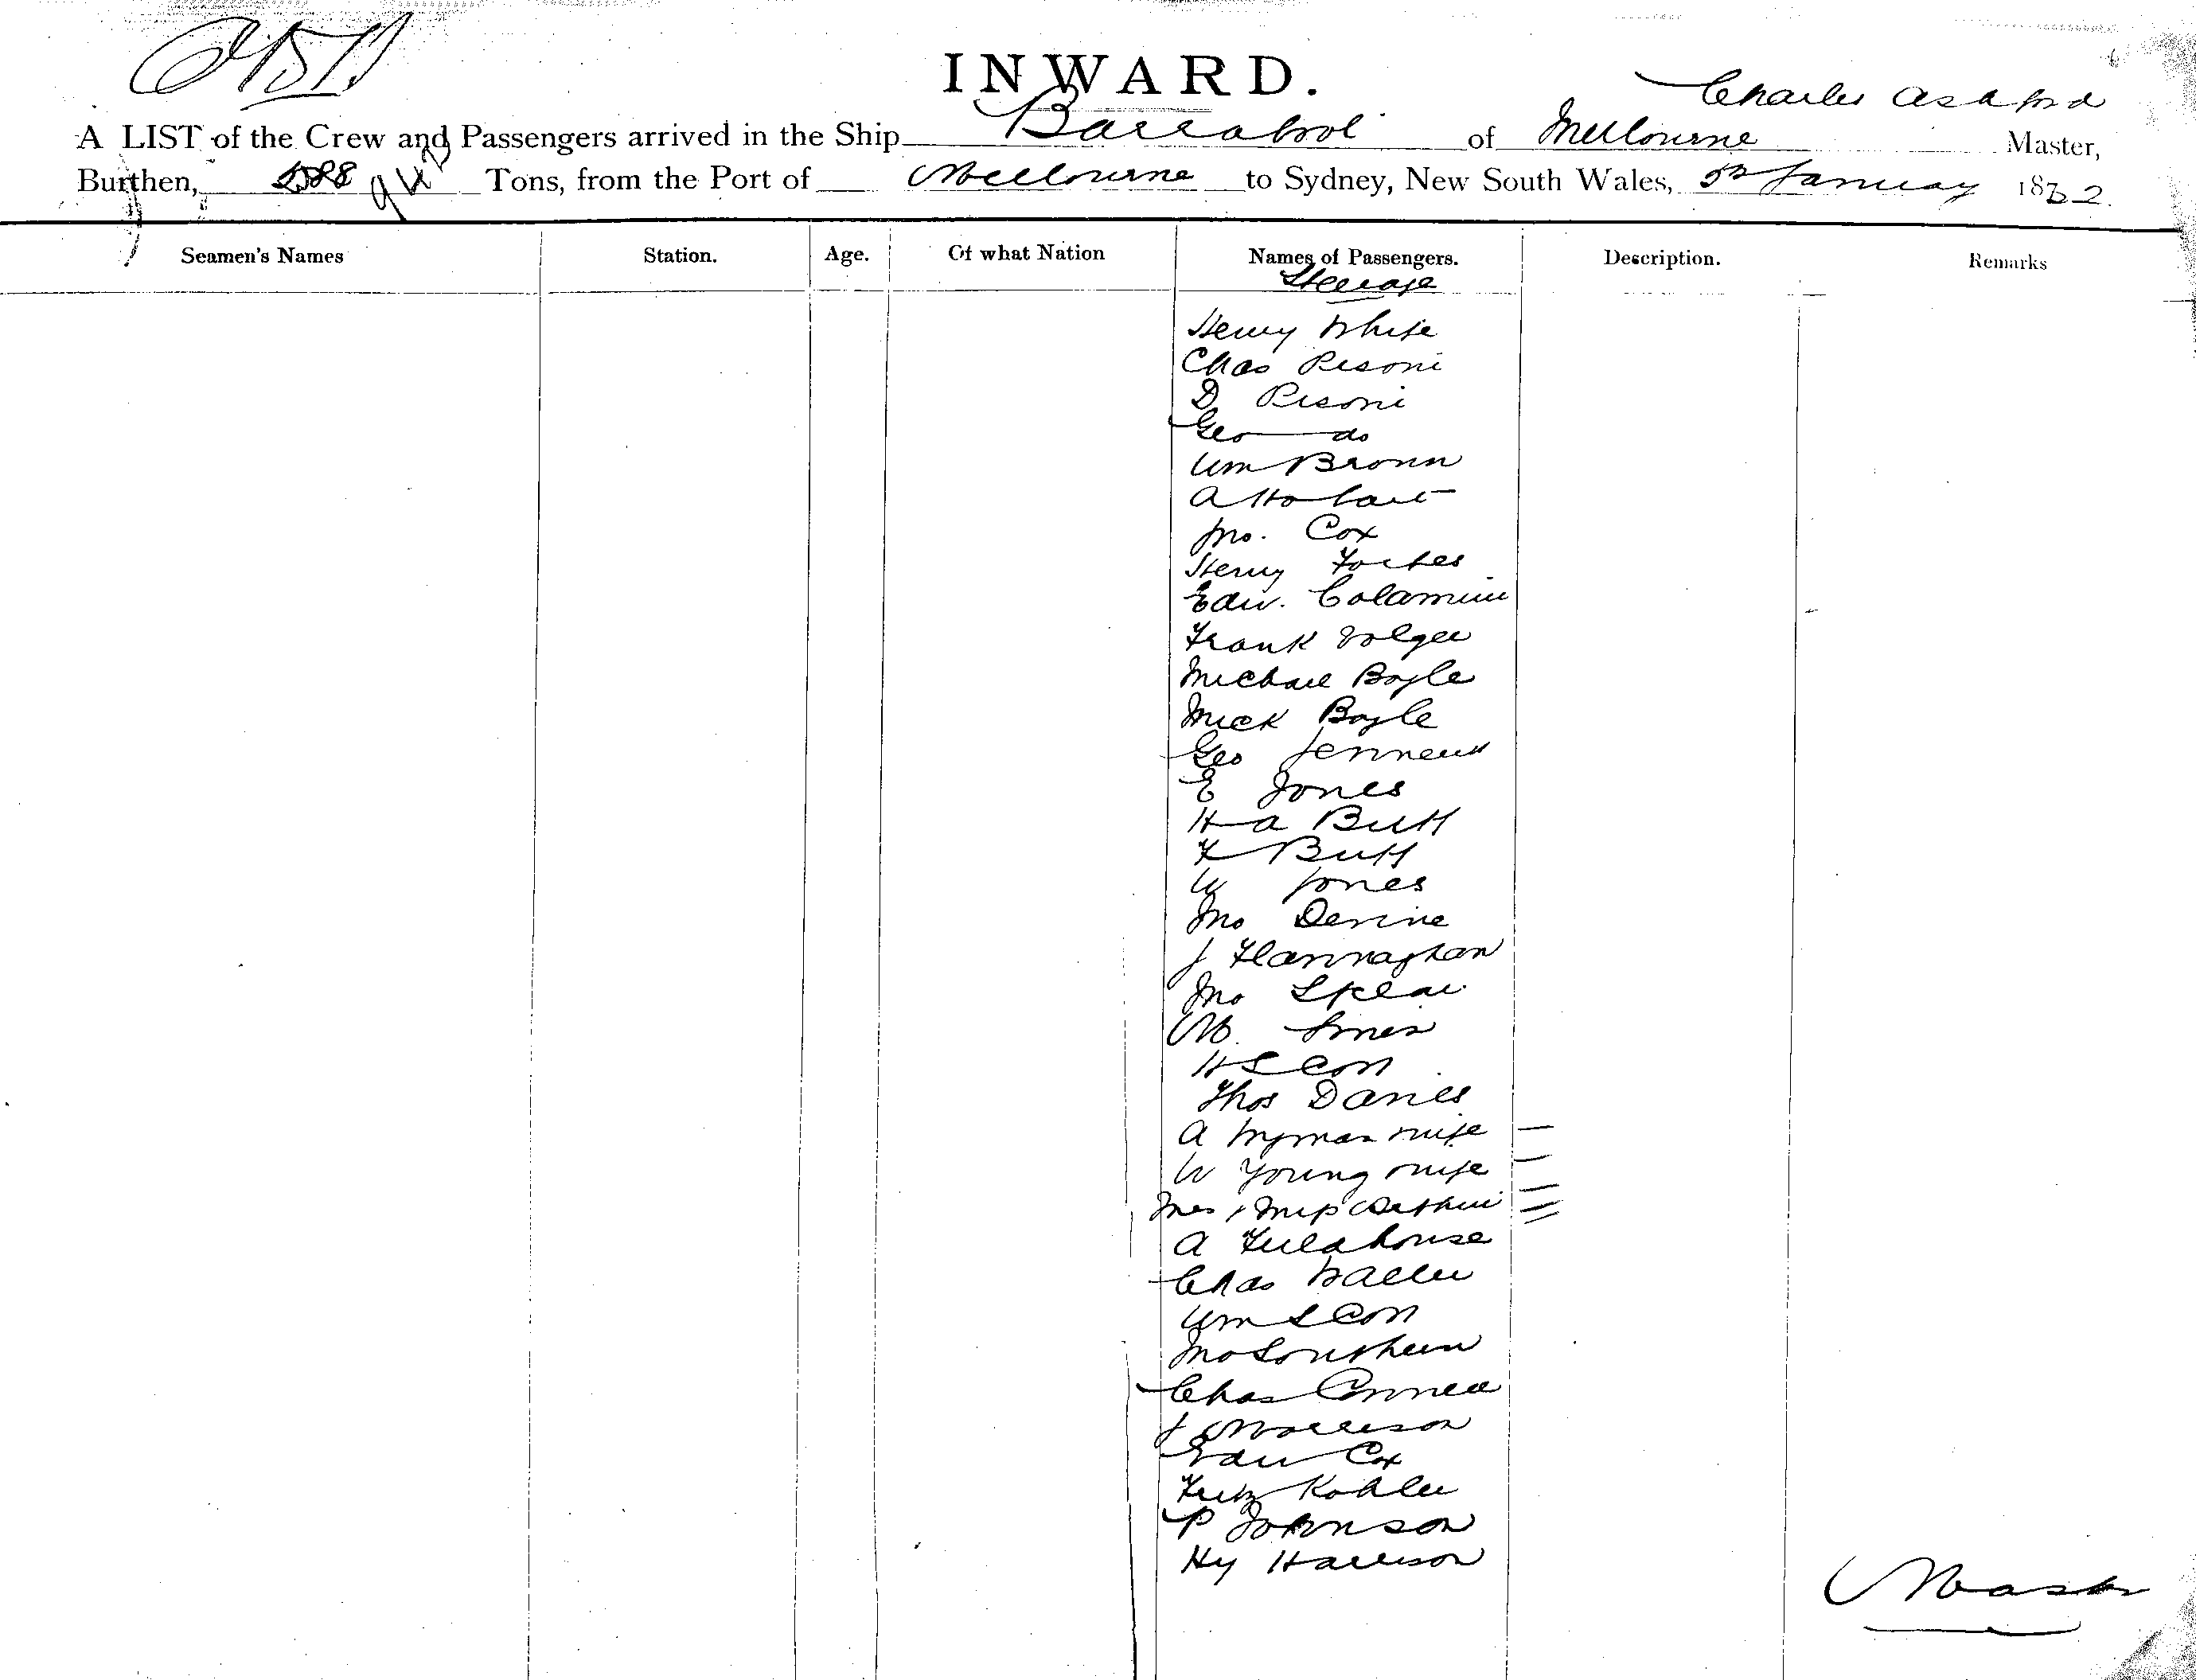 INWARD.
Charles Ashford
A LIST of the Crew and Passengers arrived in the Ship Barrabool of Melbourne Master,
Burthen, Tons, from the Port of Melbourne to Sydney, New South Wales, 5th January 1882.
Seamen's Names Station. Age. Of what Nation Names of Passengers. Description. Remarks
Steerage
Henry White
Chas Pisoni
D Pisoni
Geo do
Wm Brown
A Hobart
Jno. Cox
Henry Forbes
Edw.
Frank Volger
Michael Boyle
Mick Boyle
Geo
E Jones
H A Butt
F Butt
W Jones
Jno Devine
J Flannaghan
Jno
M. Jones
H L Con
Thos Davies
A Wyman wife
W Young wife
Mrs & Miss Arthur
A
Chas Waller
Wm L Con
Jno Southern
Chas Connell
J Morrison
Edw Cox
Fritz Kohler
P Johnson
Hy Harrison
Master